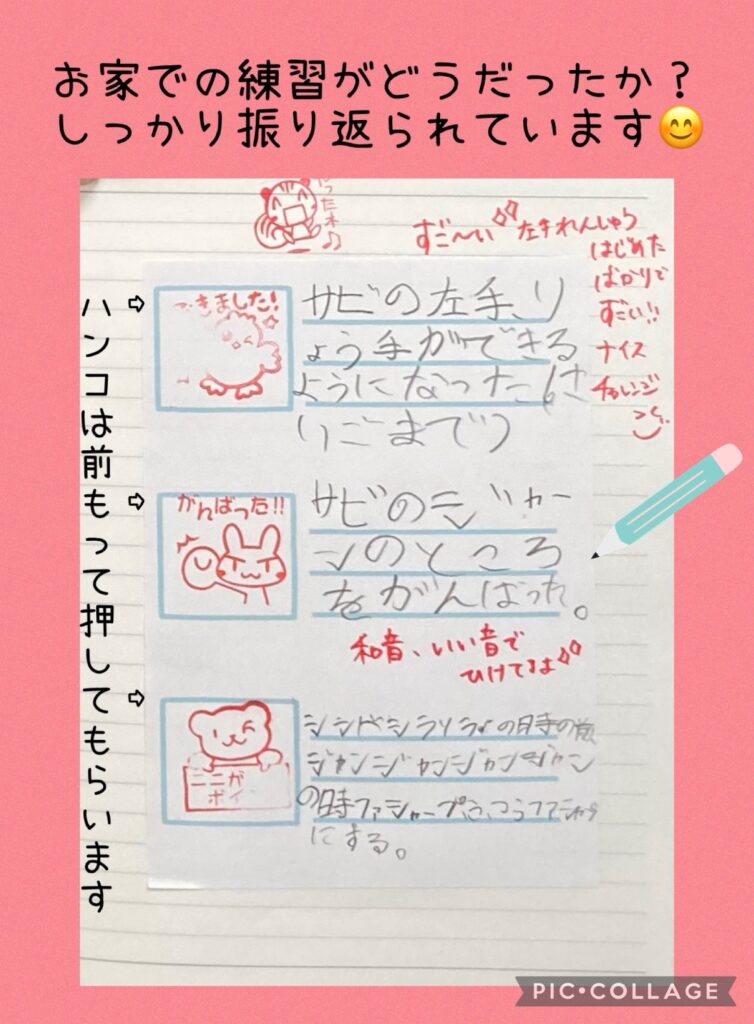 お家での練習がどうだったか？
しっかり振り返られています😊
ハンコは前もって押してもらいます
⇨
すご〜い
左手れんしゅう
はじめた
ばかりで
すごい!!
ナイス
チャレンジ
できました!
サビの左手、り
ょう手ができる
ようになった(さ
いごまで)
⇨
がんばった!!
サビのジャー
ンのところ
をがんばった。
和音、いい音で
ひけてるよ
⇨
ここが
ポイ
の時の
ジャンジャンジャンジャン
の時ファシャープ
にする。
PIC•COLLAGE